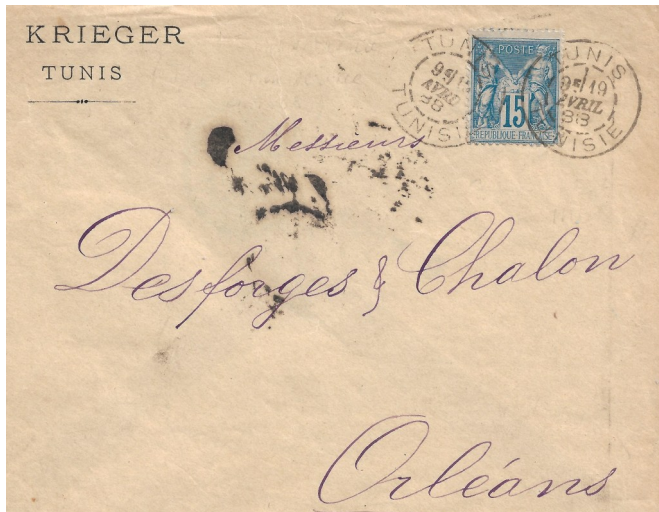 KRIEGER
TUNIS
TUNIS
19
AVRIL
88
TUNISIE
POSTE
15
REPUBLIQUE FRANÇAISE
TUNIS
19
AVRIL
88
TUNISIE
Messieurs
Desforges & Chalon
Orléans